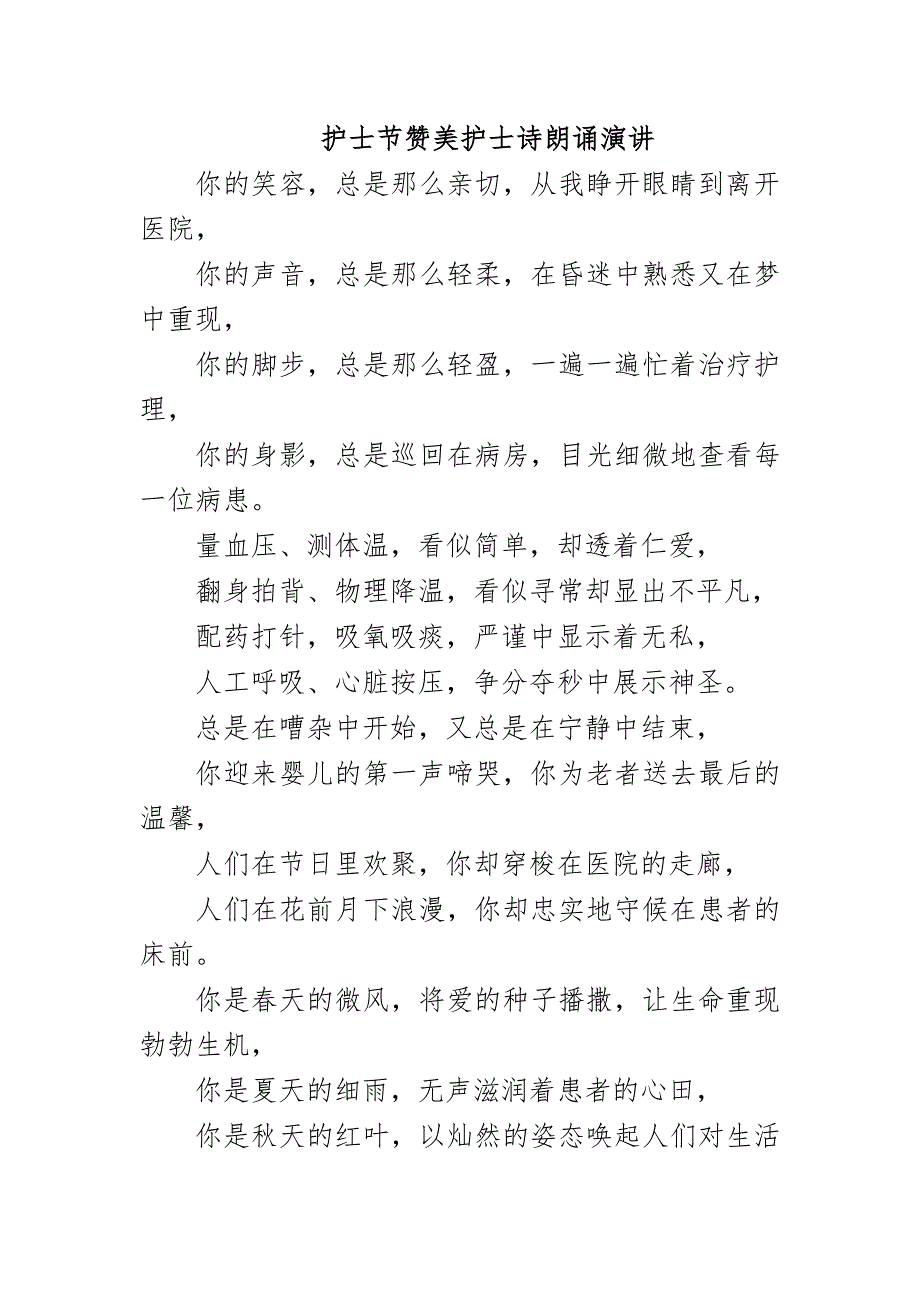 护士节赞美护士诗朗诵演讲
你的笑容，总是那么亲切，从我睁开眼睛到离开
医院，
你的声音，总是那么轻柔，在昏迷中熟悉又在梦
中重现，
你的脚步，总是那么轻盈，一遍一遍忙着治疗护
理，
你的身影，总是巡回在病房，目光细微地查看每
一位病患。
量血压、测体温，看似简单，却透着仁爱，
翻身拍背、物理降温，看似寻常却显出不平凡，
配药打针，吸氧吸痰，严谨中显示着无私，
人工呼吸、心脏按压，争分夺秒中展示神圣。
总是在嘈杂中开始，又总是在宁静中结束，
你迎来婴儿的第一声啼哭，你为老者送去最后的
温馨，
人们在节日里欢聚，你却穿梭在医院的走廊，
人们在花前月下浪漫，你却忠实地守候在患者的
床前。
你是春天的微风，将爱的种子播撒，让生命重现
勃勃生机，
你是夏天的细雨，无声滋润着患者的心田，
你是秋天的红叶，以灿然的姿态唤起人们对生活